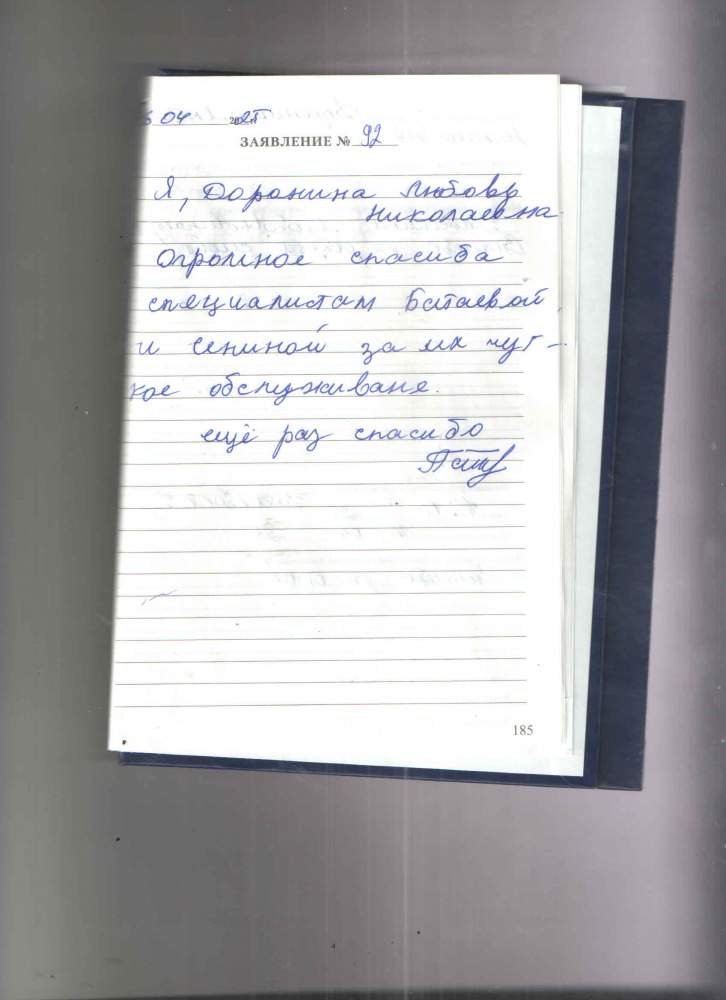 04 20
ЗАЯВЛЕНИЕ № 92
Я, Доронина Любовь
Николаевна
Огромное спасиба
специалистам Батаевой
и Сениной за их чут-
кое обслуживане.
ещё раз спасибо
185